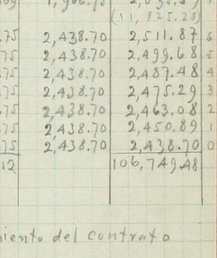 (11,825.28)
.75 2,438.70 2,511.87 6
75 2,438.70 2,499.68 5
.75 2,438.70 2,487.48 4
.75 2,438.70 2,475.29 3
75 2,438.70 2,463.08 2
75 2,438.70 2,450.89
75 2,438.70 2,438.70 0
12 106,749.48
iento del contrato